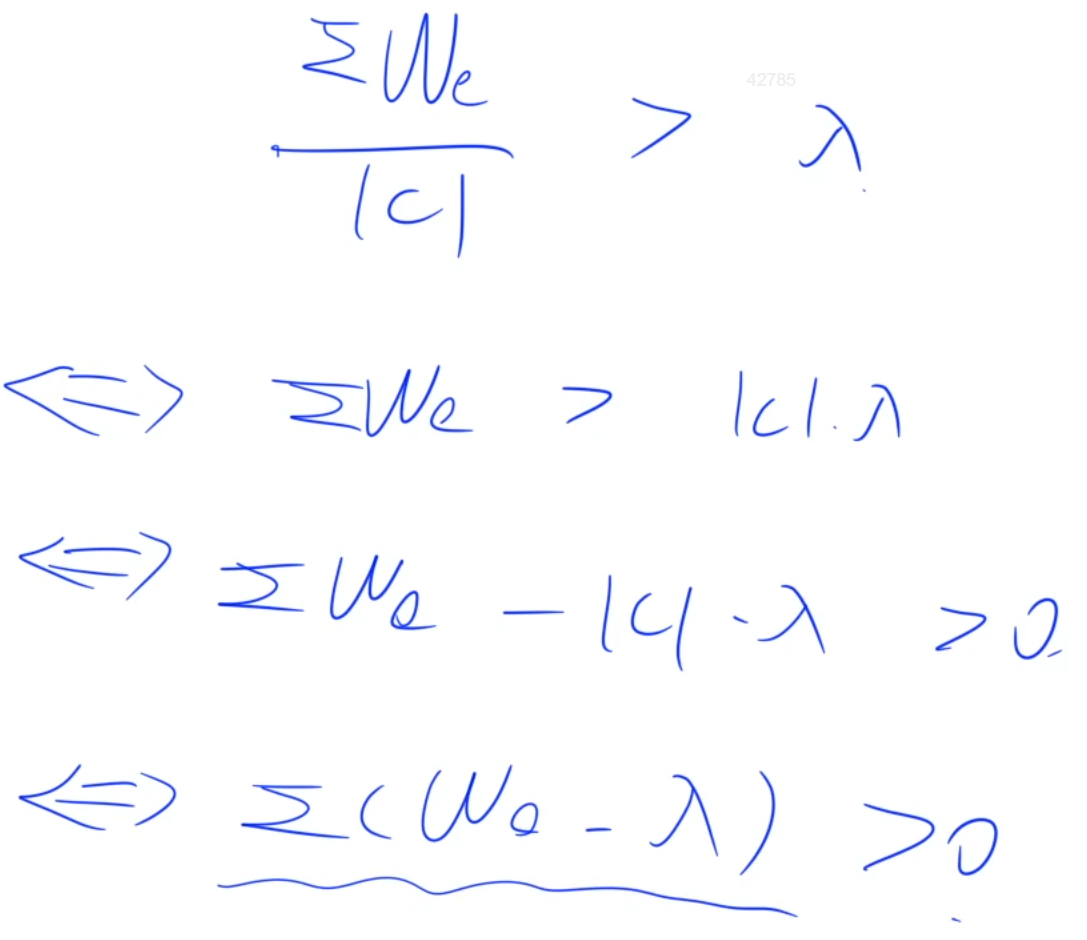 42785
ΣWe / |C| > λ
⟺ ΣWe > |C|·λ
⟺ ΣWe − |C|·λ > 0.
⟺ Σ(We − λ) > 0